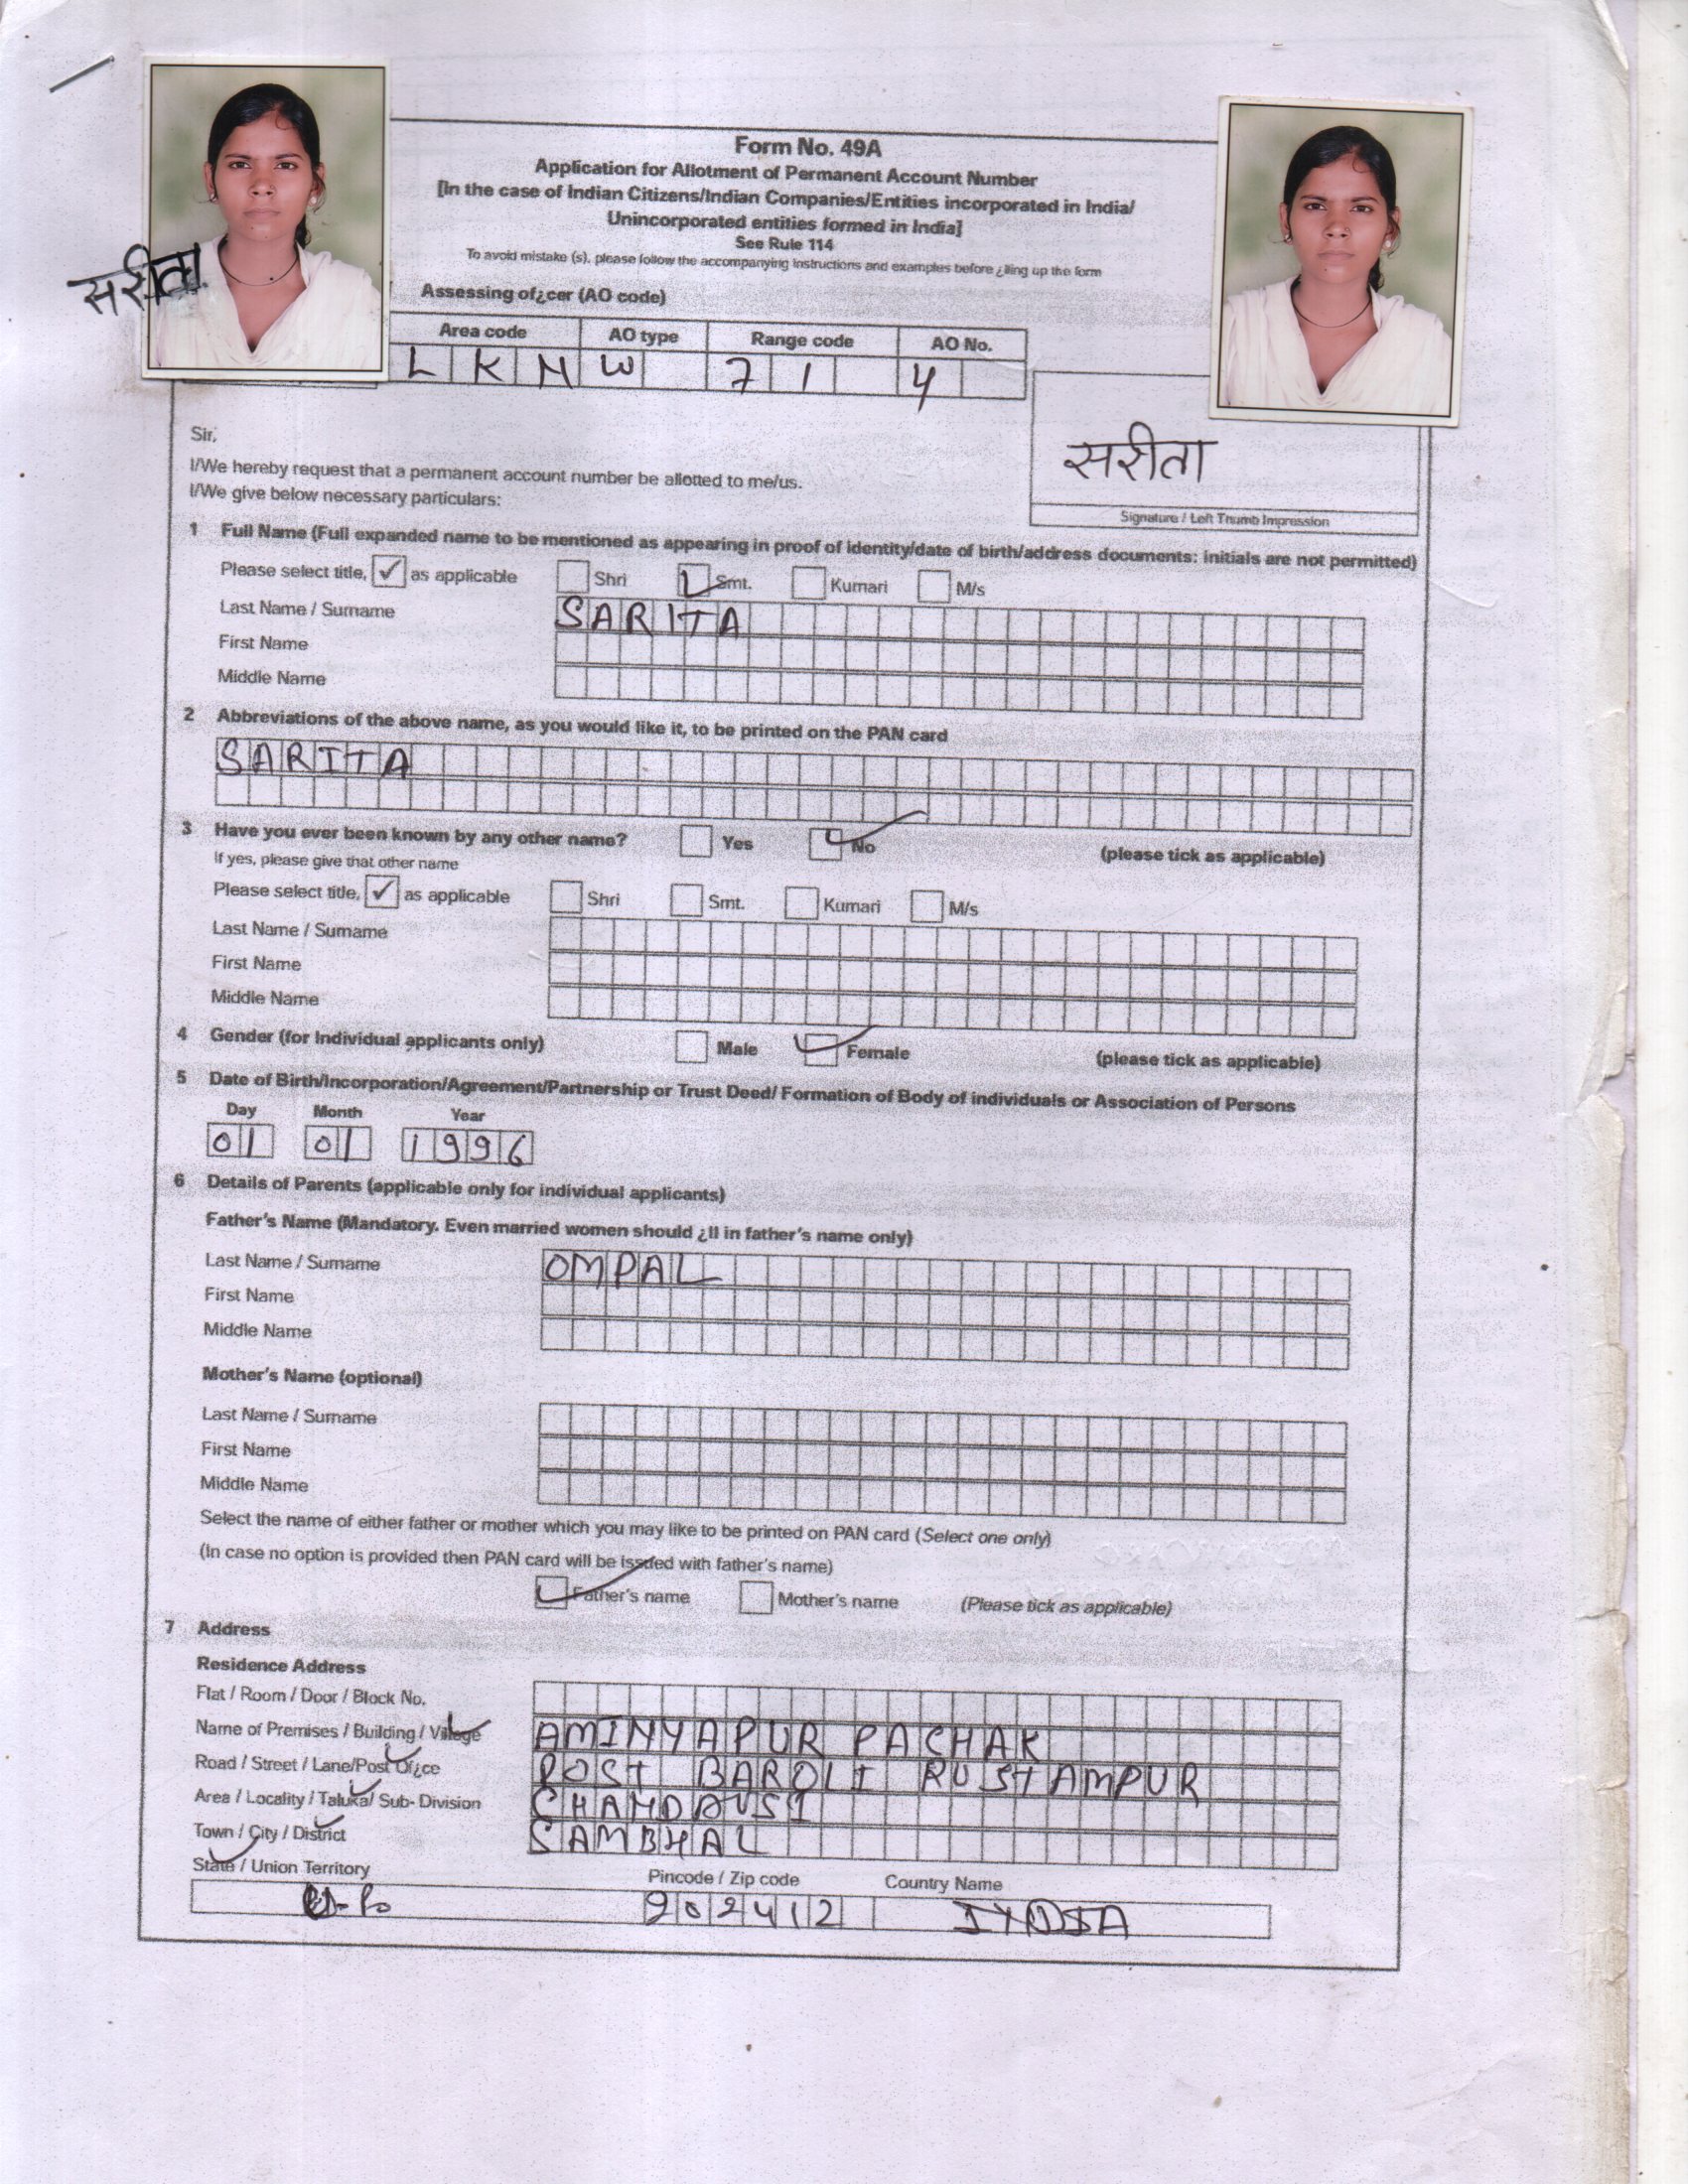 Form No. 49A
Application for Allotment of Permanent Account Number
[In the case of Indian Citizens/Indian Companies/Entities incorporated in India/
Unincorporated entities formed in India]
See Rule 114
To avoid mistake (s), please follow the accompanying instructions and examples before ¿lling up the form
सरीता
Assessing of¿cer (AO code)
Area code AO type Range code AO No.
L K N W 7 1 4
सरीता
Signature / Left Thumb Impression
Sir,
I/We hereby request that a permanent account number be allotted to me/us.
I/We give below necessary particulars:
1 Full Name (Full expanded name to be mentioned as appearing in proof of identity/date of birth/address documents: initials are not permitted)
Please select title, ✓ as applicable Shri Smt. Kumari M/s
Last Name / Surname SARITA
First Name
Middle Name
2 Abbreviations of the above name, as you would like it, to be printed on the PAN card
SARITA
3 Have you ever been known by any other name? Yes No (please tick as applicable)
If yes, please give that other name
Please select title, ✓ as applicable Shri Smt. Kumari M/s
Last Name / Surname
First Name
Middle Name
4 Gender (for Individual applicants only) Male Female (please tick as applicable)
5 Date of Birth/Incorporation/Agreement/Partnership or Trust Deed/ Formation of Body of individuals or Association of Persons
Day Month Year
01 01 1996
6 Details of Parents (applicable only for individual applicants)
Father's Name (Mandatory. Even married women should ¿ll in father's name only)
Last Name / Surname OMPAL
First Name
Middle Name
Mother's Name (optional)
Last Name / Surname
First Name
Middle Name
Select the name of either father or mother which you may like to be printed on PAN card (Select one only)
(In case no option is provided then PAN card will be issued with father's name)
Father's name Mother's name (Please tick as applicable)
7 Address
Residence Address
Flat / Room / Door / Block No.
Name of Premises / Building / Village AMINYAPUR PACHAK
Road / Street / Lane/Post Of¿ce POST BAROLI RUSTAMPUR
Area / Locality / Taluka/ Sub- Division CHANDAUSI
Town / City / District SAMBHAL
State / Union Territory Pincode / Zip code Country Name
202412 INDIA